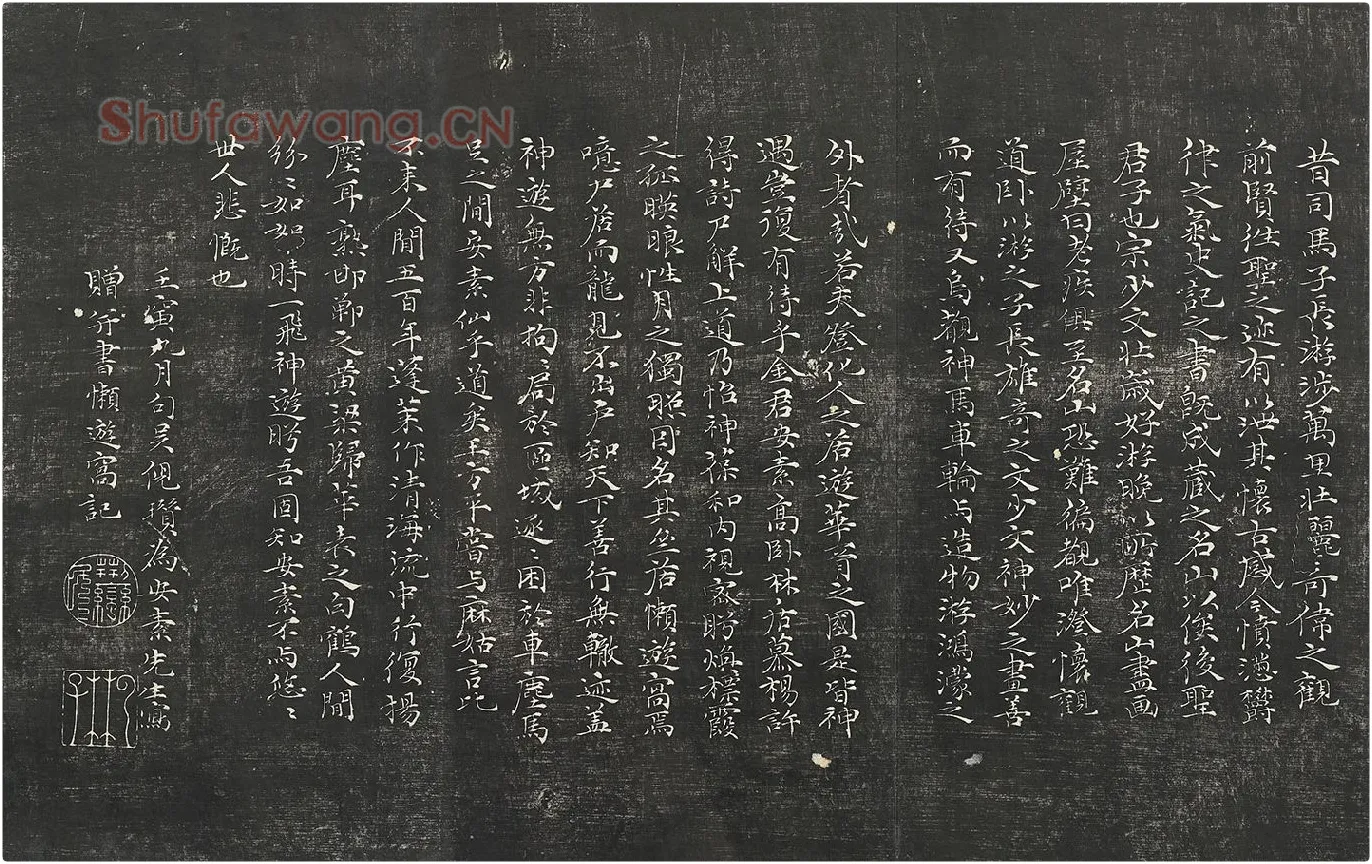 Shufawang.CN
昔司馬子長游涉萬里壯麗奇偉之觀
前賢往聖之迹有以泄其懷古感今憤懣欝
律之氣史記之書既成藏之名山以俟後聖
君子也宗少文壯歲好游晚以所歷名山盡画
屋壁曰老疾俱至名山恐難徧覩唯澄懷觀
道卧以游之子長雄奇之文少文神妙之畫善
而有待又烏覩神馬車輪与造物游鴻濛之
外者哉若夫登化人之居遊華胥之國是皆神
遇豈復有待乎金君安素高卧林居慕楊許
得詩尸解上道乃怡神葆和内視密盻煥標霞
之孤暎眼性月之獨照因名其丘居懶遊窩焉
噫尸居而龍見不出户知天下善行無轍迹盖
神遊無方非拘局於區域逐困於車塵馬
足之間安素仙乎道矣王方平嘗与麻姑言比
不来人間五百年蓬莱作清海流中行復揚
塵耳熟邯鄲之黄梁歸華表之白鶴人間
紛〻如如時一飛神遊盻吾固知安素不与悠〻
世人悲慨也
壬寅九月句吴倪瓚為安素先生寫
贈并書懶遊窩記